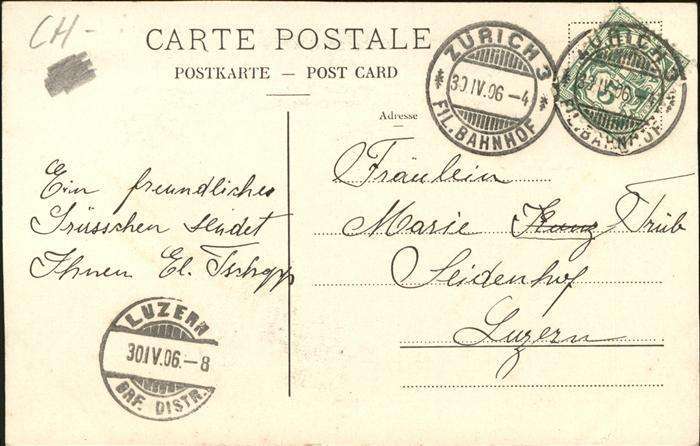 CH-
CARTE POSTALE
POSTKARTE — POST CARD
ZÜRICH 3
30 IV. 06 - 4
FIL. BAHNHOF
ZÜRICH 3
IV. 06
5
FIL. BAHNHOF
Adresse
Ein freundliches
Grüsschen sendet
Ihnen El. Tschopp
Fräulein
Marie Kunz Trüb
Seidenhof
Luzern
LUZERN
30 IV. 06. - 8
BRF. DISTR.